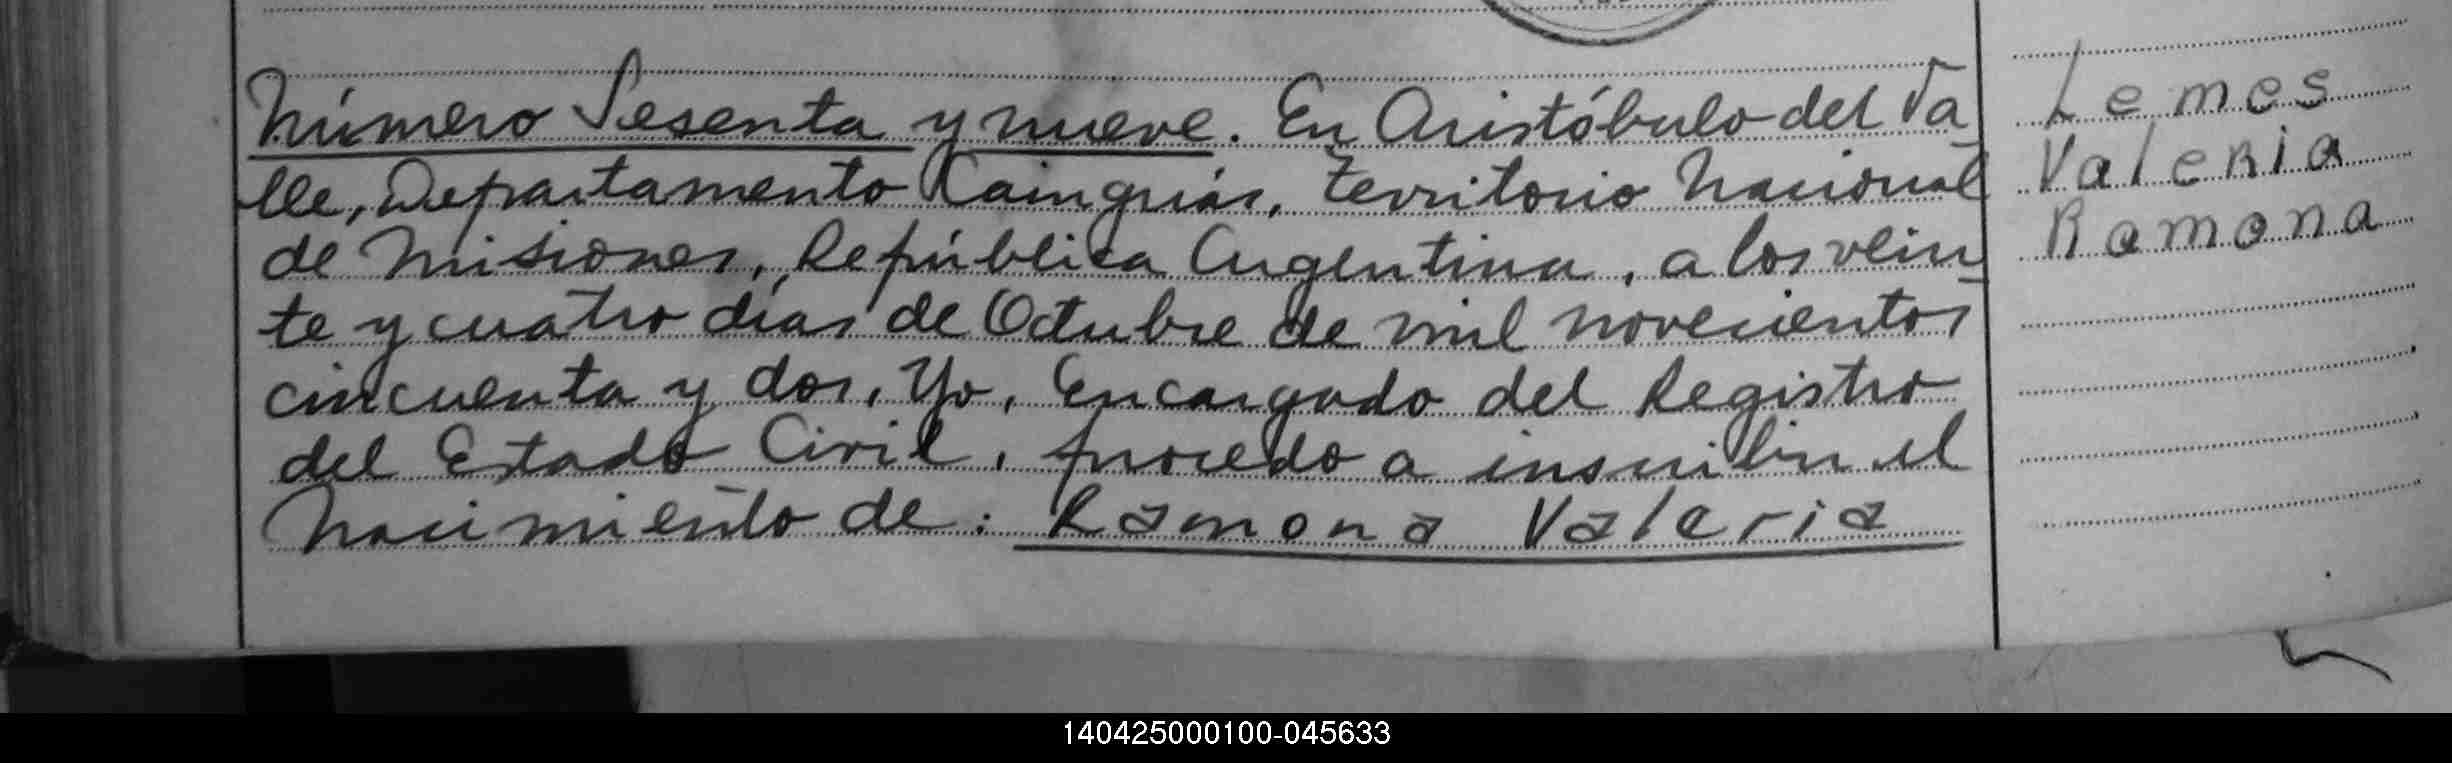 Número Sesenta y nueve. En Aristóbulo del Va
lle, Departamento Kainguás, Territorio Nacional
de Misiones, República Argentina, a los vein
te y cuatro días de Octubre de mil novecientos
cincuenta y dos, Yo, Encargado del Registro
del Estado Civil, procedo a inscribir el
nacimiento de: Ramona Valeria
Lemes
Valeria
Ramona
140425000100-045633